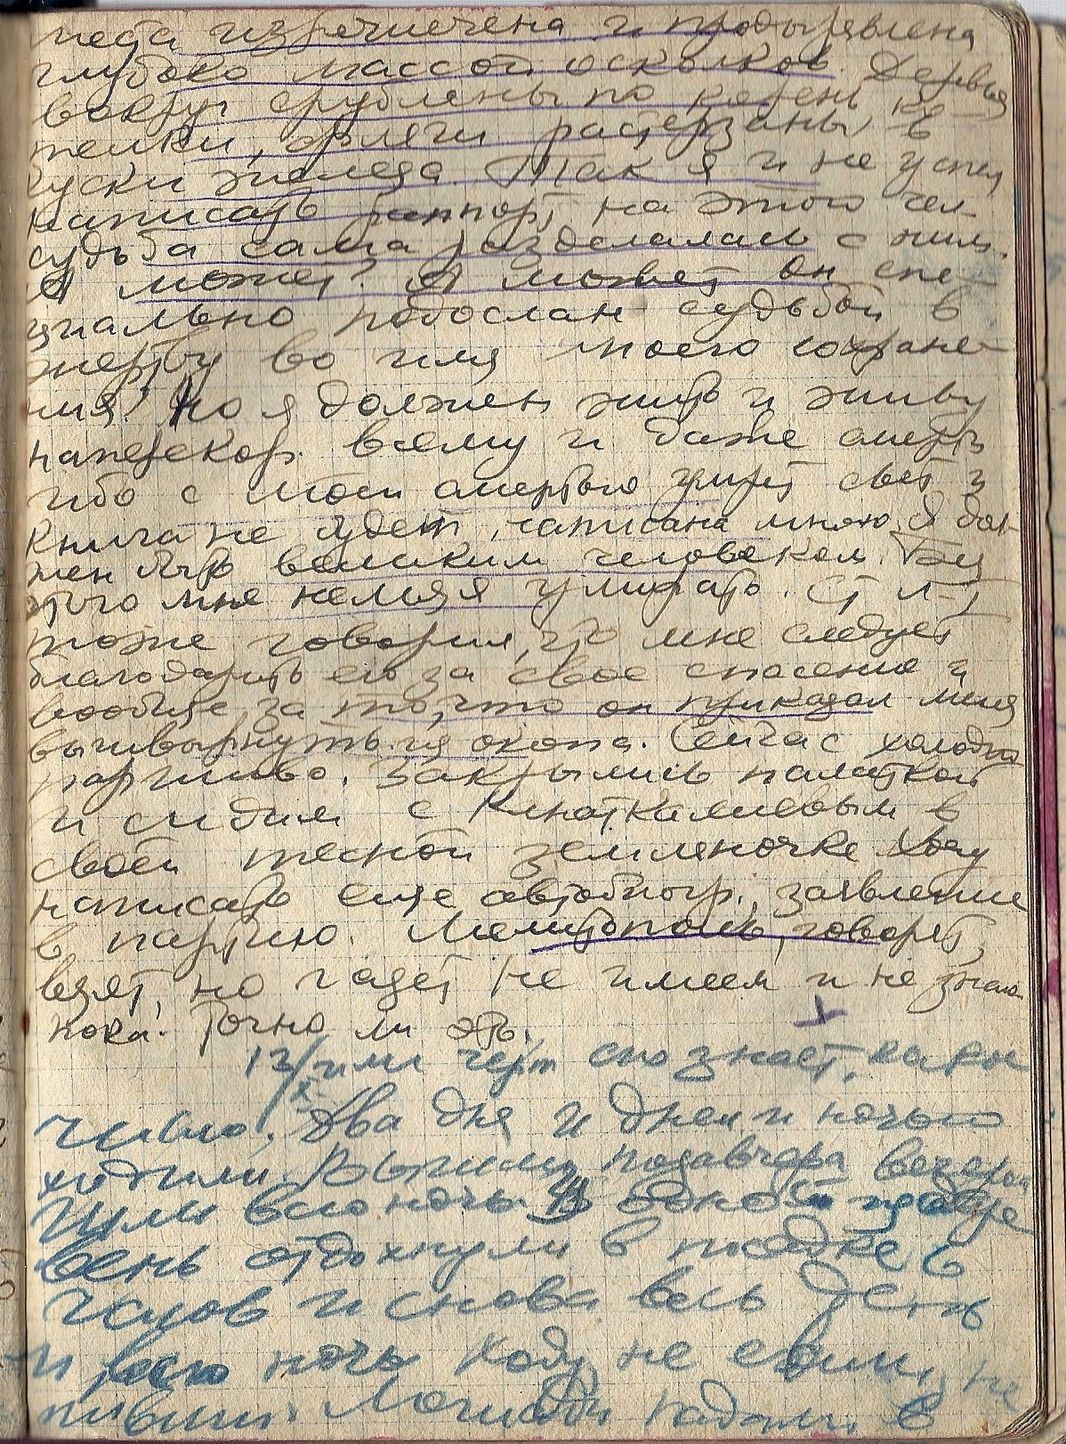 неба изречиечена и продырявлена
глубоко массой осколков. Деревья
вокруг срублены по корень на
щепки, фляги растерзаны, в
куски железа. Так я и не успел
написать раппорт на этого чел-
судьба сама разделалась с ним.
А может? А может он спе-
циально подослан судьбой в
жертву во имя моего сохране-
ния? Но я должен жить и живу
наперекор всему и даже смерти
ибо с моей смертью умрет свет и
книга не будет написана мною. Я дол-
жен быть великим человеком. Без
этого мне нельзя умирать. Ст л-т
тоже говорил, что мне следует
благодарить его за свое спасение и
вообще за то, что он приказал меня
вышвырнуть из окопа. Сейчас холодно
паршиво. Закрылись палаткой
и сидим с в
своей тесной земляночке. Хочу
написать еще автобиогр., заявление
в партию. Мелитополь, говорят,
взят, но газет не имеем и не знаю
пока: точно ли это.
13/X или черт его знает, какое
число. Два дня и днем и ночью
ходили. Вышли позавчера вечером
Шли всю ночь. В одной из дере-
вень отдохнули в посадке 6
часов и снова весь день
и всю ночь ходу не евши, не
пивши. Лошади падали в